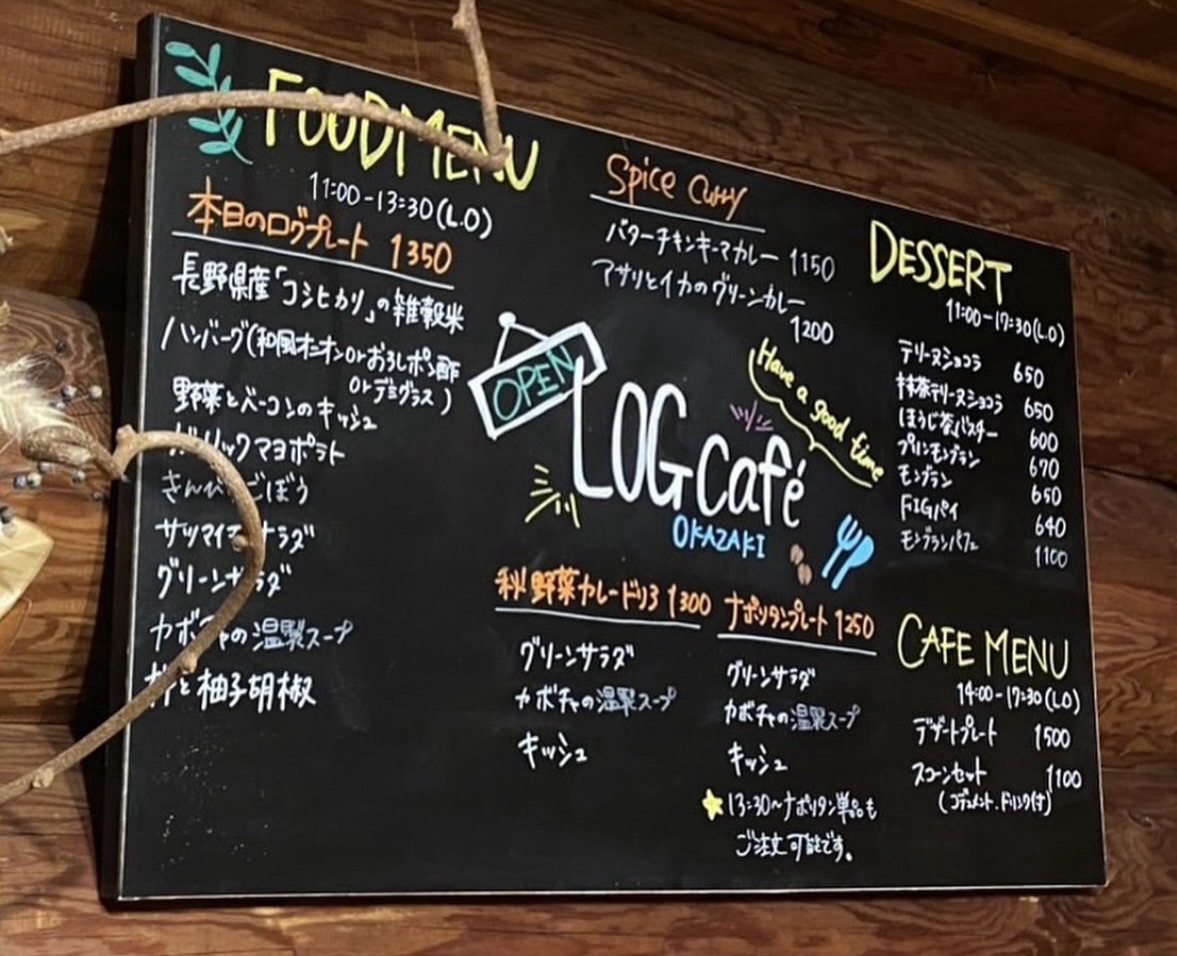 FOOD MENU
11:00-13:30(L.O)
本日のログプレート 1350
長野県産「コシヒカリ」の雑穀米
ハンバーグ(和風オニオンorおろしポン酢
orデミグラス)
野菜とベーコンのキッシュ
ガーリックマヨポテト
きんぴらごぼう
サツマイモサラダ
グリーンサラダ
カボチャの温製スープ
柚子胡椒
Spice Curry
バターチキンキーマカレー 1150
アサリとイカのグリーンカレー
1200
OPEN
Have a good time
LOG Café
OKAZAKI
秋野菜カレードリア 1300
グリーンサラダ
カボチャの温製スープ
キッシュ
ナポリタンプレート 1250
グリーンサラダ
カボチャの温製スープ
キッシュ
★13:30~ナポリタン単品も
ご注文可能です。
DESSERT
11:00-17:30(L.O)
テリーヌショコラ 650
抹茶テリーヌショコラ 650
ほうじ茶バスチー 600
プリンモンブラン 670
モンブラン 650
FIGパイ 640
モンブランパフェ 1100
CAFE MENU
14:00-17:30(LO)
デザートプレート 1500
スコーンセット 1100
(コディメント.ドリンク付)